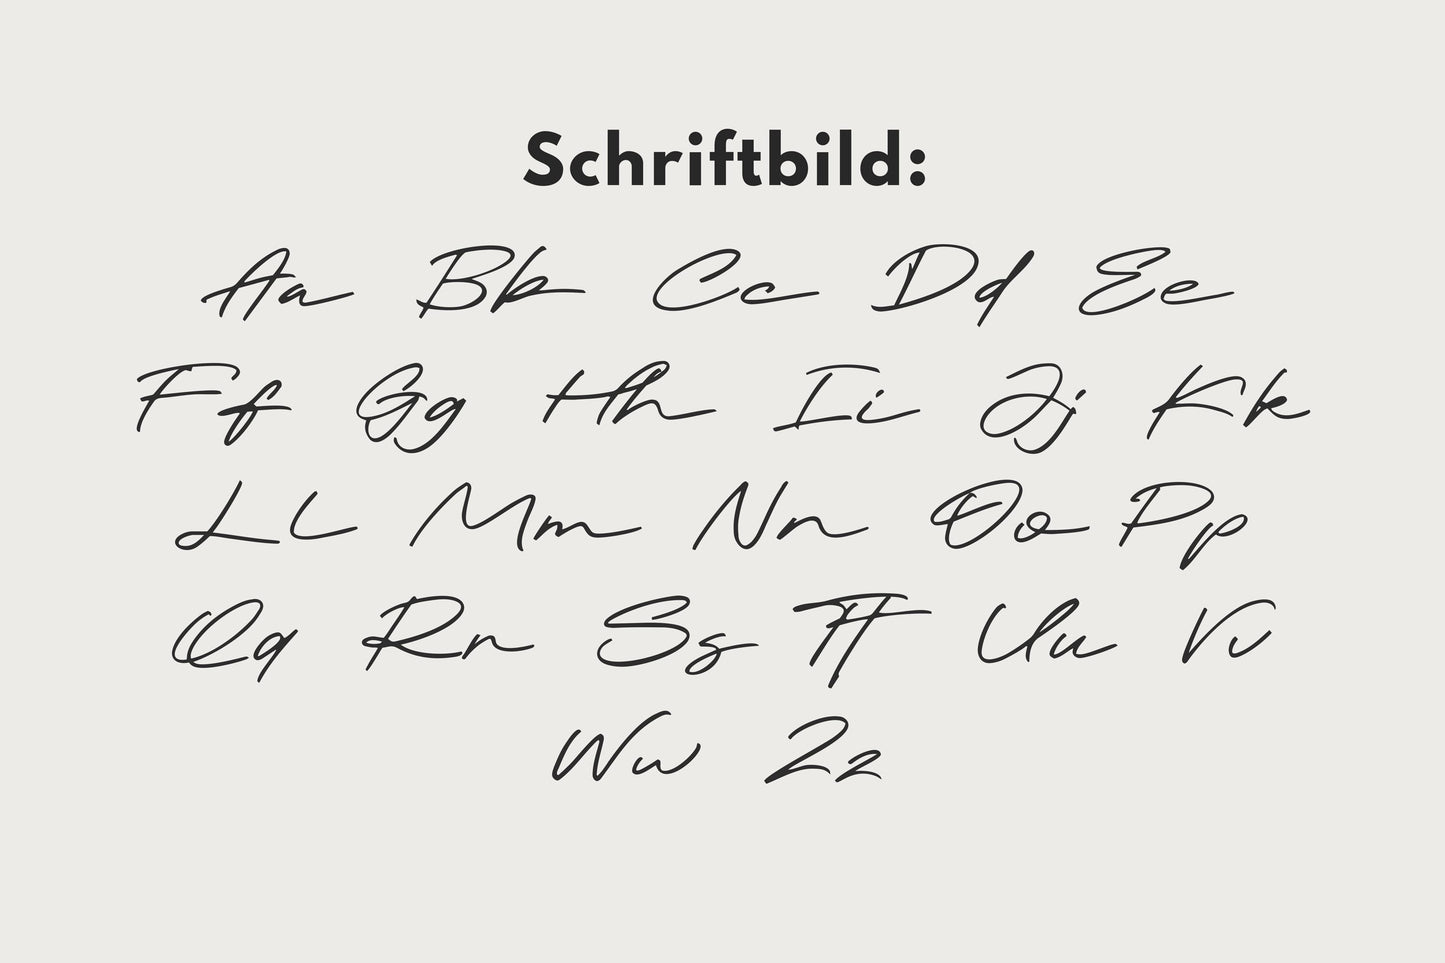 Schriftbild:
Aa Bb Cc Dd Ee
Ff Gg Hh Ii Jj Kk
Ll Mm Nn Oo Pp
Qq Rr Ss Tt Uu Vv
Ww Zz